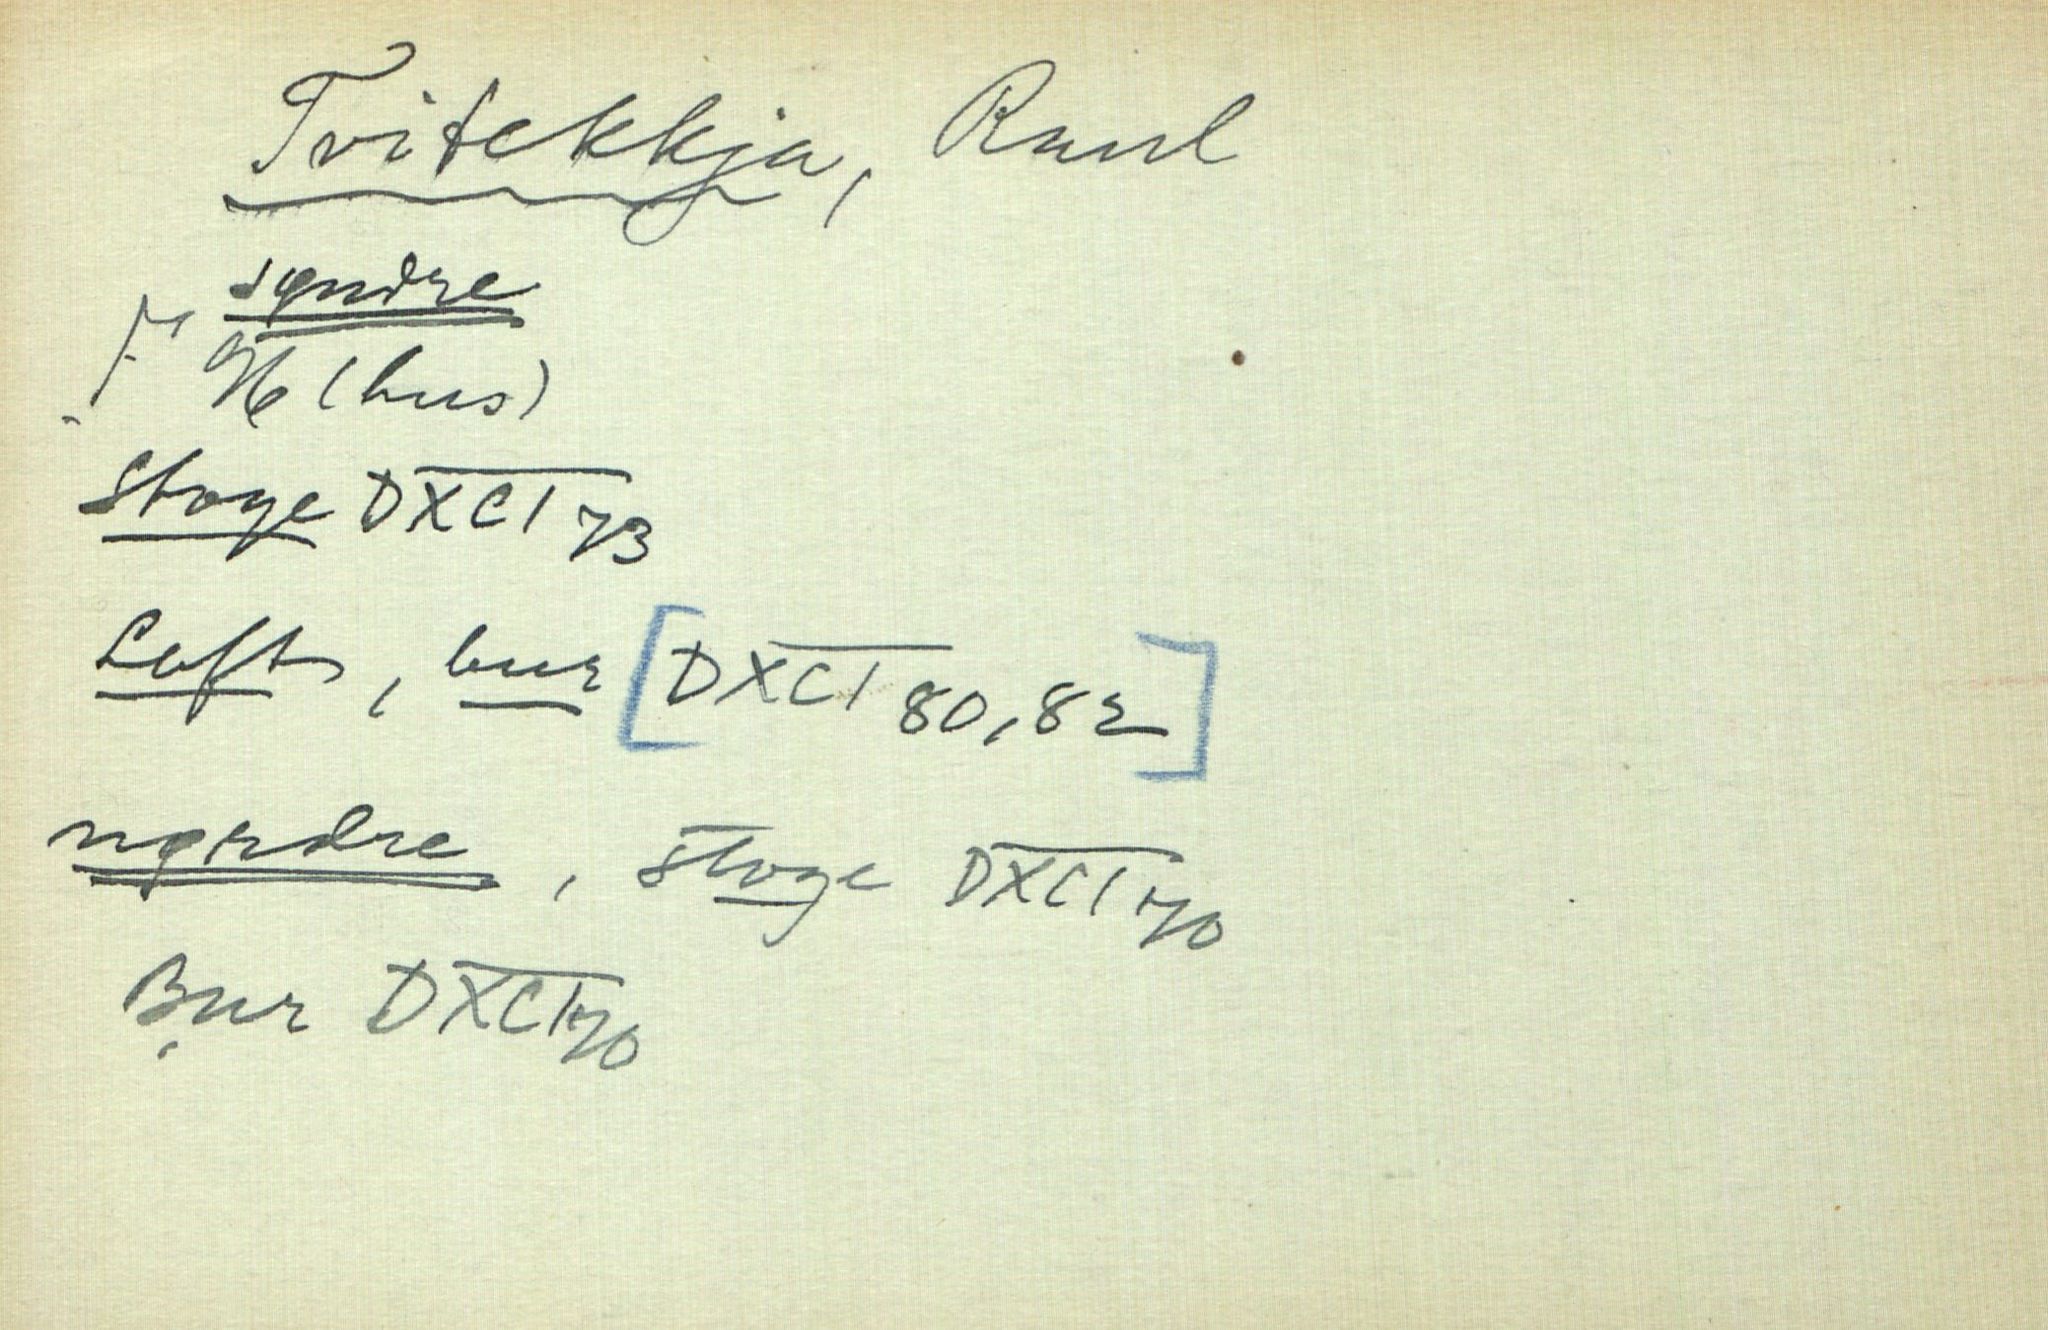 Tvitekkja, Raul
syndre
F H (hus)
Stoge DXCI 73
Loft, bur [DXCI 80, 82]
nyrdre, stoge DXCI 70
Bur DXCI 70